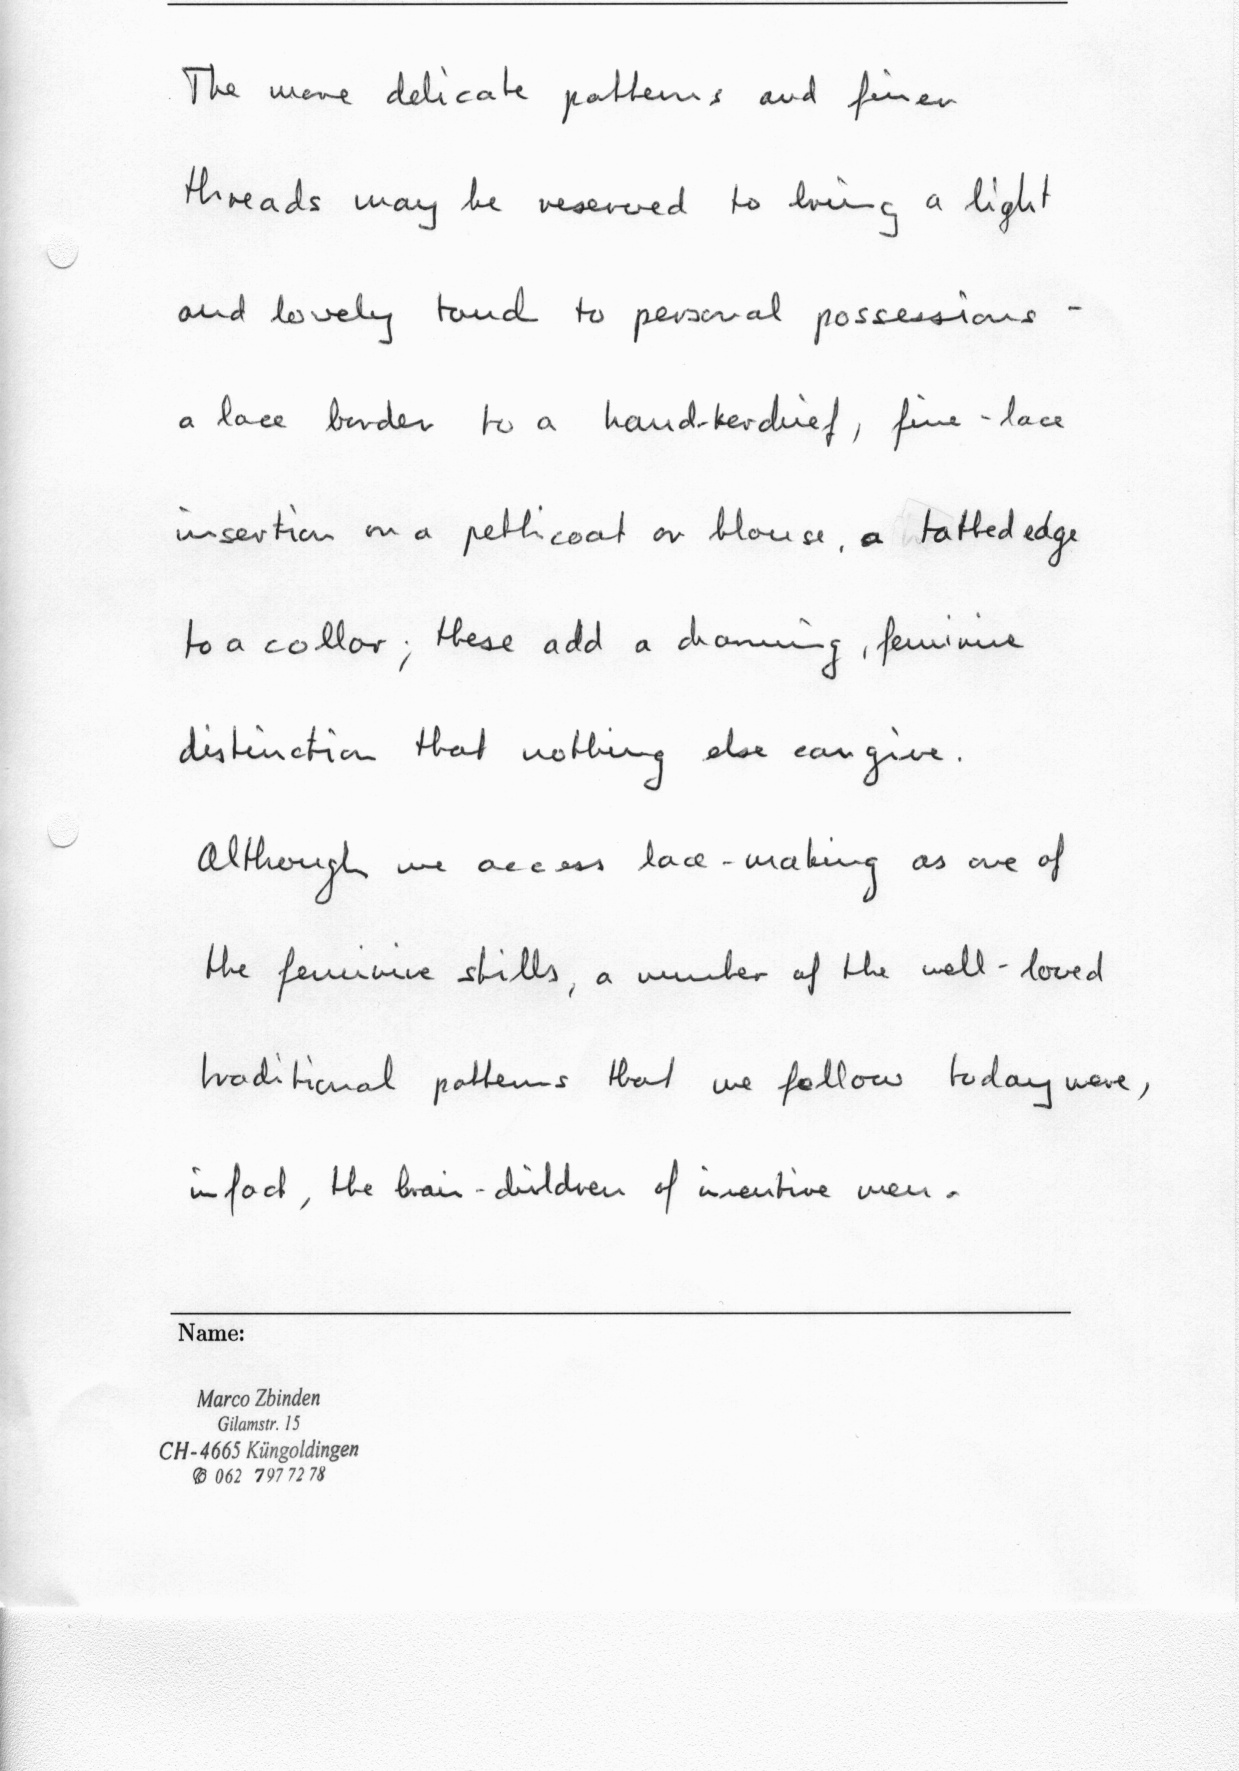 The more delicate patterns and finer
threads may be reserved to bring a light
and lovely touch to personal possessions -
a lace border to a hand-kerchief, fine-lace
insertion on a petticoat or blouse, a tatted edge
to a collar; these add a charming, feminine
distinction that nothing else can give.
Although we access lace-making as one of
the feminine skills, a number of the well-loved
traditional patterns that we follow today were,
in fact, the brain-children of inventive men.
Name:
Marco Zbinden
Gilamstr. 15
CH-4665 Küngoldingen
✆ 062 797 72 78